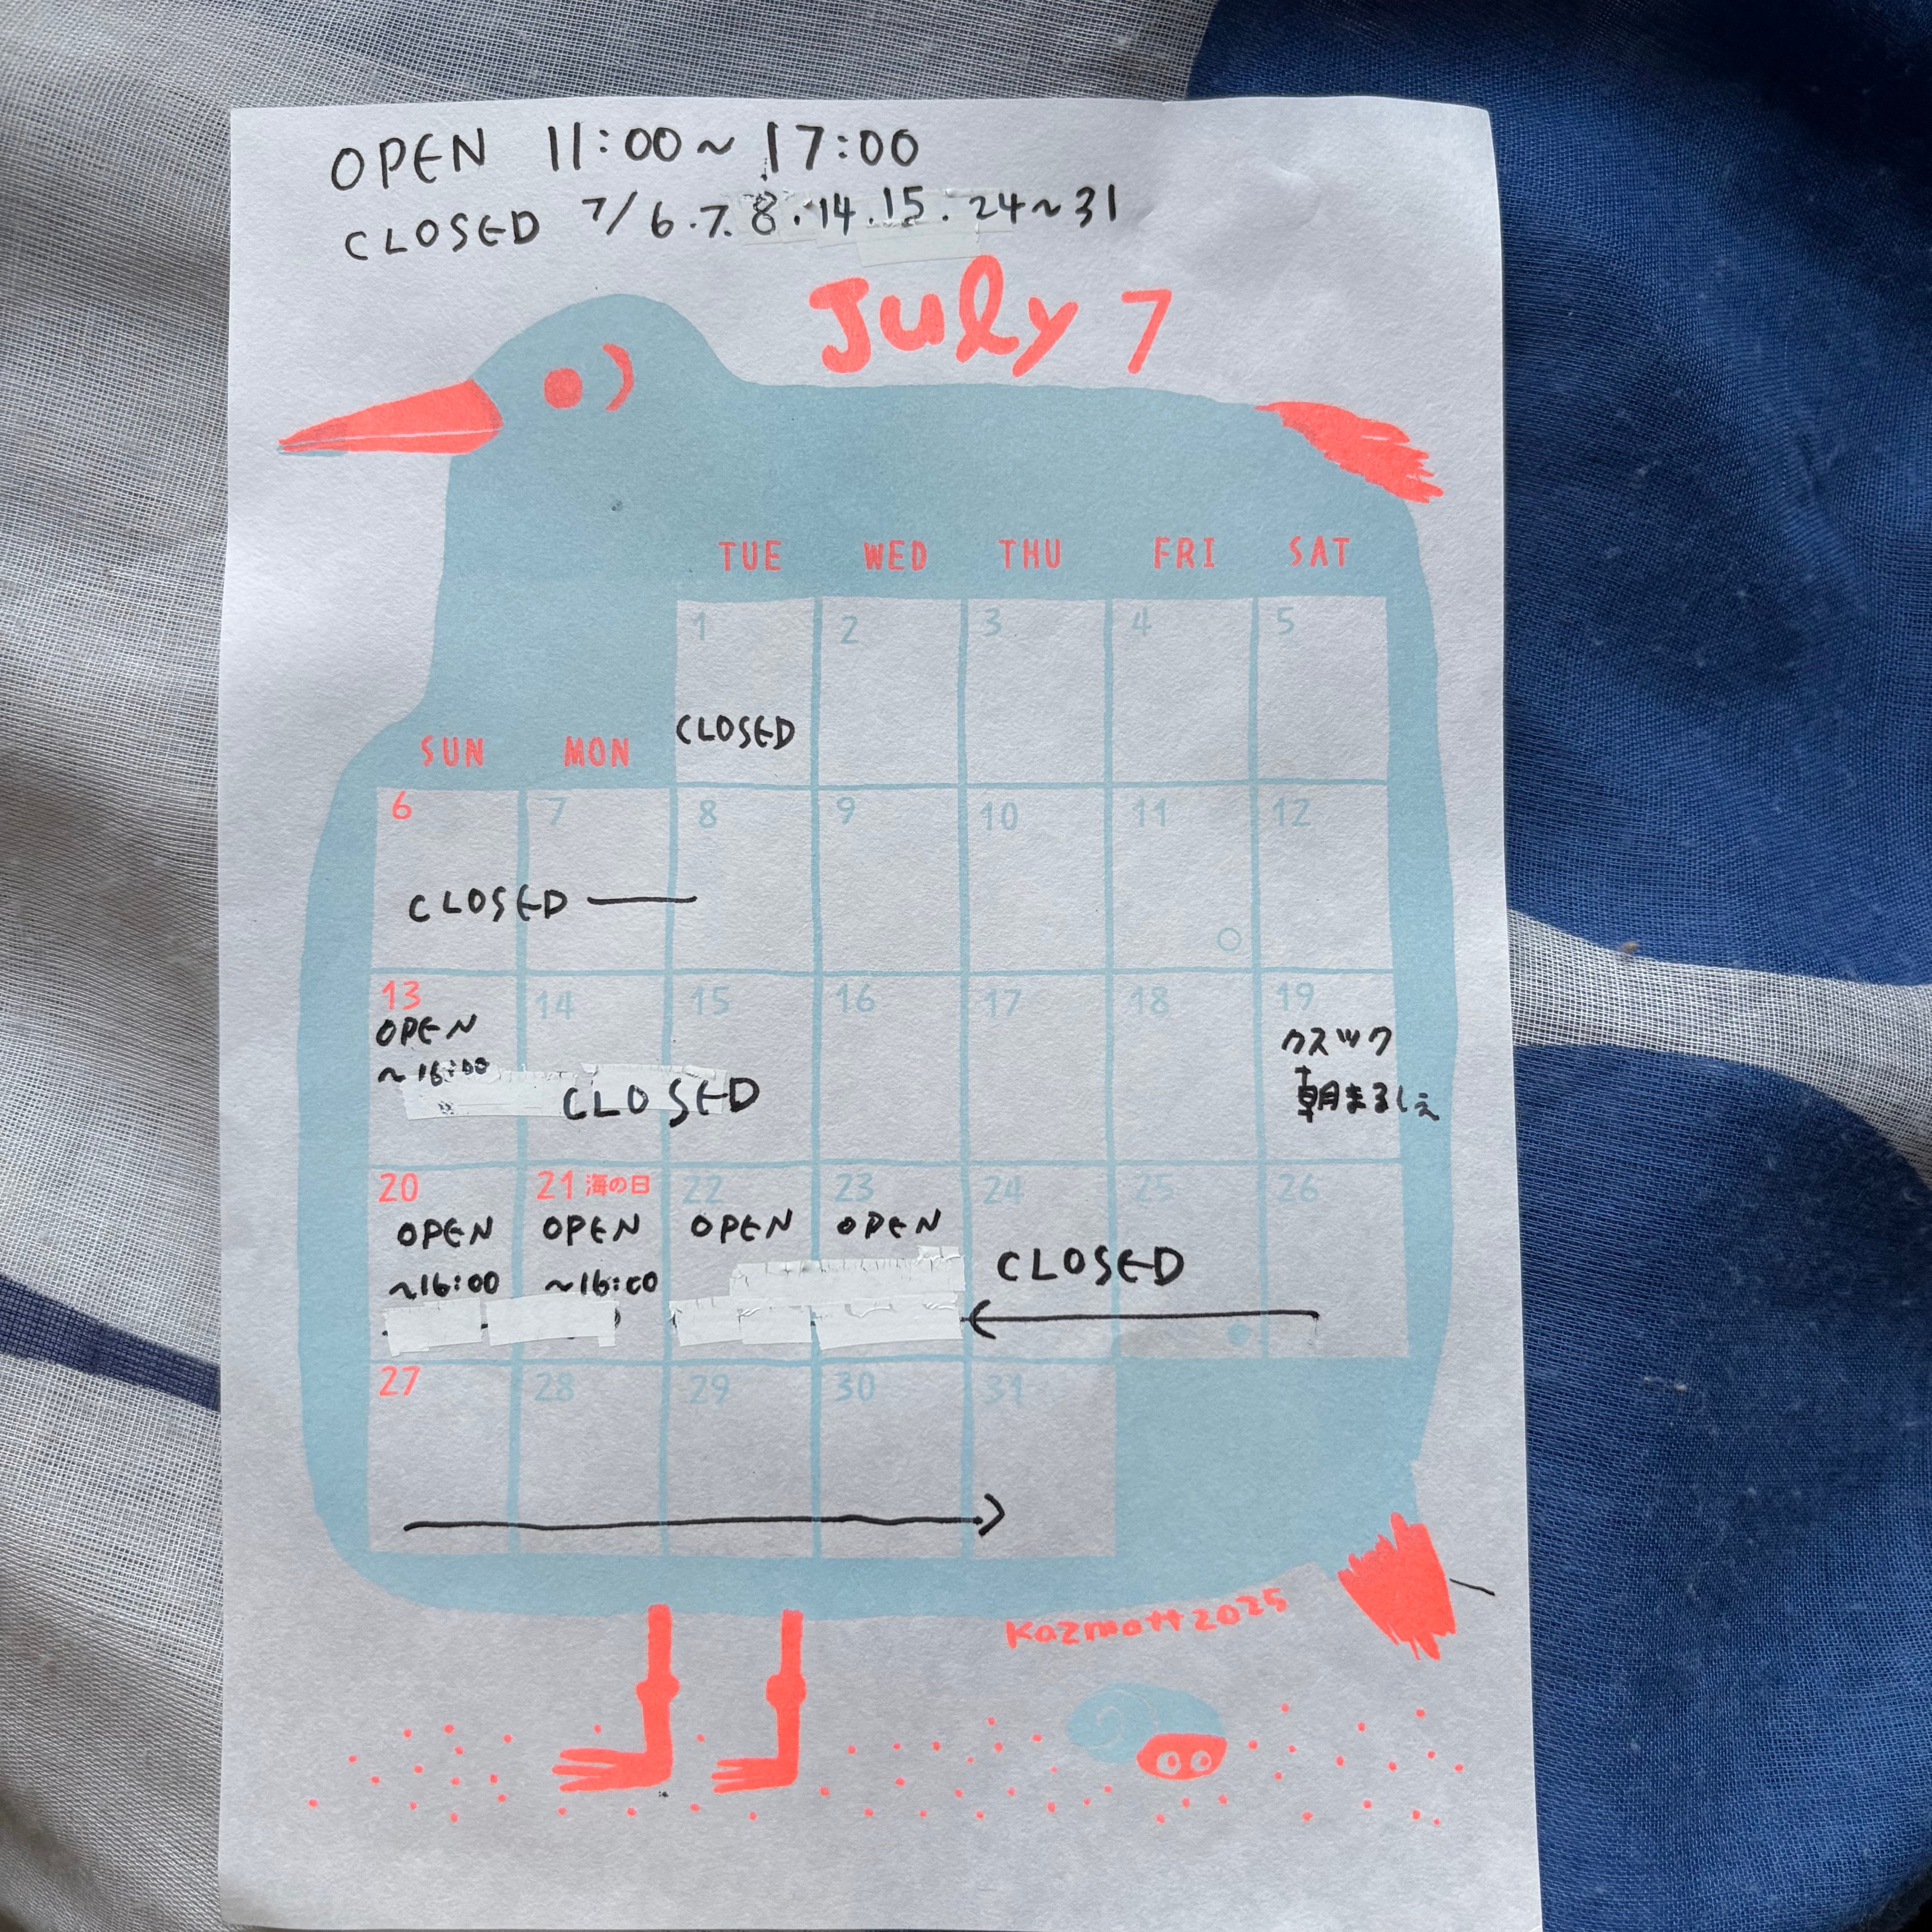 OPEN 11:00～17:00
CLOSED 7/6.7.8.14.15.24～31
July 7
TUE WED THU FRI SAT
1 2 3 4 5
CLOSED
SUN MON
6 7 8 9 10 11 12
CLOSED
13 14 15 16 17 18 19
OPEN
～16:00
CLOSED
クスック
朝まるしぇ
20 21 海の日 22 23 24 25 26
OPEN OPEN OPEN OPEN
～16:00 ～16:00
CLOSED
27 28 29 30 31
Kazmott2025